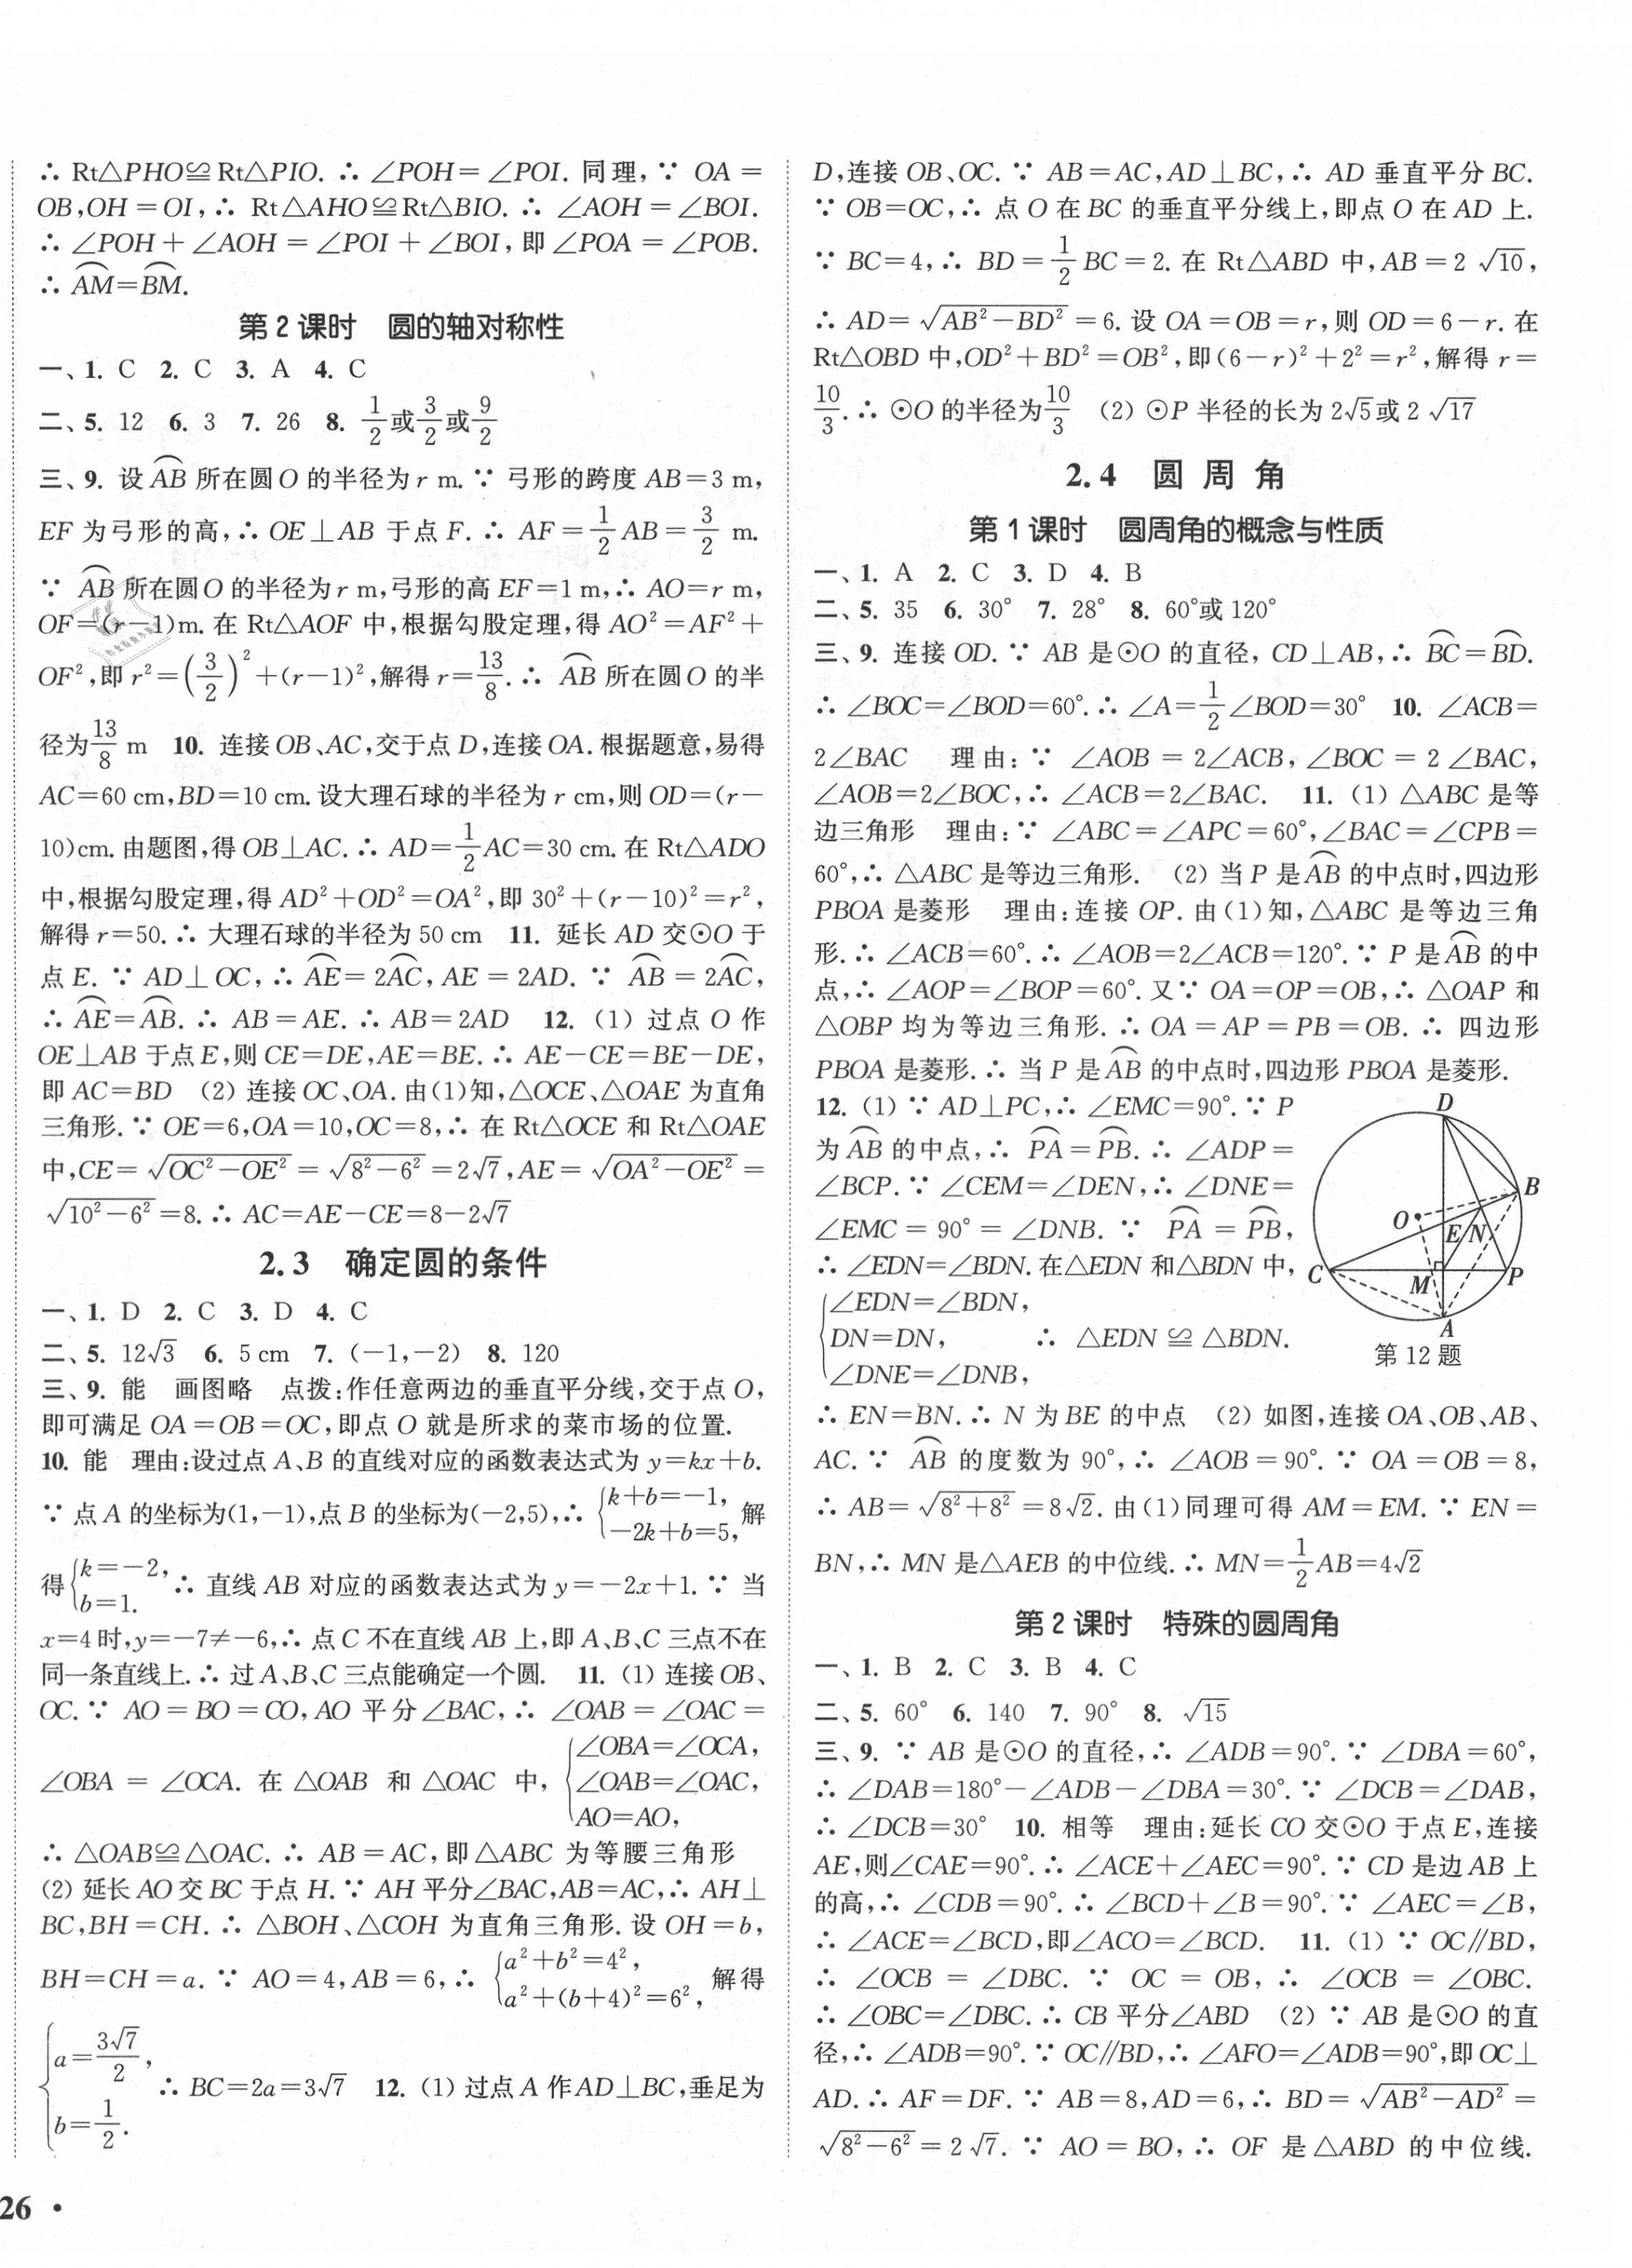 ∴ Rt△PHO≌Rt△PIO. ∴ ∠POH=∠POI. 同理,∵ OA=
OB,OH=OI,∴ Rt△AHO≌Rt△BIO. ∴ ∠AOH=∠BOI.
∴ ∠POH+∠AOH=∠POI+∠BOI,即∠POA=∠POB.
∴ $\overset{\frown}{AM}=\overset{\frown}{BM}$.
第2课时 圆的轴对称性
一、1. C 2. C 3. A 4. C
二、5. 12 6. 3 7. 26 8. $\frac{1}{2}$或$\frac{3}{2}$或$\frac{9}{2}$
三、9. 设$\overset{\frown}{AB}$所在圆O的半径为r m. ∵ 弓形的跨度AB=3 m,
EF为弓形的高,∴ OE⊥AB于点F. ∴ AF=$\frac{1}{2}$AB=$\frac{3}{2}$ m.
∵ $\overset{\frown}{AB}$所在圆O的半径为r m,弓形的高EF=1 m,∴ AO=r m,
OF=(r-1)m. 在Rt△AOF中,根据勾股定理,得AO²=AF²+
OF²,即r²=$\left(\frac{3}{2}\right)^2$+(r-1)²,解得r=$\frac{13}{8}$. ∴ $\overset{\frown}{AB}$所在圆O的半
径为$\frac{13}{8}$ m 10. 连接OB、AC,交于点D,连接OA. 根据题意,易得
AC=60 cm,BD=10 cm. 设大理石球的半径为r cm,则OD=(r-
10)cm. 由题图,得OB⊥AC. ∴ AD=$\frac{1}{2}$AC=30 cm. 在Rt△ADO
中,根据勾股定理,得AD²+OD²=OA²,即30²+(r-10)²=r²,
解得r=50. ∴ 大理石球的半径为50 cm 11. 延长AD交⊙O于
点E. ∵ AD⊥OC,∴ $\overset{\frown}{AE}=2\overset{\frown}{AC}$,AE=2AD. ∵ $\overset{\frown}{AB}=2\overset{\frown}{AC}$,
∴ $\overset{\frown}{AE}=\overset{\frown}{AB}$. ∴ AB=AE. ∴ AB=2AD 12. (1) 过点O作
OE⊥AB于点E,则CE=DE,AE=BE. ∴ AE-CE=BE-DE,
即AC=BD (2) 连接OC、OA. 由(1)知,△OCE、△OAE为直角
三角形. ∵ OE=6,OA=10,OC=8,∴ 在Rt△OCE和Rt△OAE
中,CE=$\sqrt{OC^2-OE^2}$=$\sqrt{8^2-6^2}$=2$\sqrt{7}$,AE=$\sqrt{OA^2-OE^2}$=
$\sqrt{10^2-6^2}$=8. ∴ AC=AE-CE=8-2$\sqrt{7}$
2.3 确定圆的条件
一、1. D 2. C 3. D 4. C
二、5. 12$\sqrt{3}$ 6. 5 cm 7. (-1,-2) 8. 120
三、9. 能 画图略 点拨:作任意两边的垂直平分线,交于点O,
即可满足OA=OB=OC,即点O就是所求的菜市场的位置.
10. 能 理由:设过点A、B的直线对应的函数表达式为y=kx+b.
∵ 点A的坐标为(1,-1),点B的坐标为(-2,5),∴ $\begin{cases}k+b=-1,\\-2k+b=5,\end{cases}$解
得$\begin{cases}k=-2,\\b=1.\end{cases}$∴ 直线AB对应的函数表达式为y=-2x+1. ∵ 当
x=4时,y=-7≠-6,∴ 点C不在直线AB上,即A、B、C三点不在
同一条直线上. ∴ 过A、B、C三点能确定一个圆. 11. (1) 连接OB、
OC. ∵ AO=BO=CO,AO平分∠BAC,∴ ∠OAB=∠OAC=
∠OBA=∠OCA. 在△OAB和△OAC中,$\begin{cases}∠OBA=∠OCA,\\∠OAB=∠OAC,\\AO=AO,\end{cases}$
∴ △OAB≌△OAC. ∴ AB=AC,即△ABC为等腰三角形
(2) 延长AO交BC于点H. ∵ AH平分∠BAC,AB=AC,∴ AH⊥
BC,BH=CH. ∴ △BOH、△COH为直角三角形. 设OH=b,
BH=CH=a. ∵ AO=4,AB=6,∴ $\begin{cases}a^2+b^2=4^2,\\a^2+(b+4)^2=6^2,\end{cases}$解得
$\begin{cases}a=\frac{3\sqrt{7}}{2},\\b=\frac{1}{2}.\end{cases}$∴ BC=2a=3$\sqrt{7}$ 12. (1) 过点A作AD⊥BC,垂足为
26 •
D,连接OB、OC. ∵ AB=AC,AD⊥BC,∴ AD垂直平分BC.
∵ OB=OC,∴ 点O在BC的垂直平分线上,即点O在AD上.
∵ BC=4,∴ BD=$\frac{1}{2}$BC=2. 在Rt△ABD中,AB=2$\sqrt{10}$,
∴ AD=$\sqrt{AB^2-BD^2}$=6. 设OA=OB=r,则OD=6-r. 在
Rt△OBD中,OD²+BD²=OB²,即(6-r)²+2²=r²,解得r=
$\frac{10}{3}$. ∴ ⊙O的半径为$\frac{10}{3}$ (2) ⊙P半径的长为2$\sqrt{5}$或2$\sqrt{17}$
2.4 圆周角
第1课时 圆周角的概念与性质
一、1. A 2. C 3. D 4. B
二、5. 35 6. 30° 7. 28° 8. 60°或120°
三、9. 连接OD. ∵ AB是⊙O的直径,CD⊥AB,∴ $\overset{\frown}{BC}=\overset{\frown}{BD}$.
∴ ∠BOC=∠BOD=60°. ∴ ∠A=$\frac{1}{2}$∠BOD=30° 10. ∠ACB=
2∠BAC 理由:∵ ∠AOB=2∠ACB,∠BOC=2∠BAC,
∠AOB=2∠BOC,∴ ∠ACB=2∠BAC. 11. (1) △ABC是等
边三角形 理由:∵ ∠ABC=∠APC=60°,∠BAC=∠CPB=
60°,∴ △ABC是等边三角形. (2) 当P是$\overset{\frown}{AB}$的中点时,四边形
PBOA是菱形 理由:连接OP. 由(1)知,△ABC是等边三角
形. ∴ ∠ACB=60°. ∴ ∠AOB=2∠ACB=120°. ∵ P是$\overset{\frown}{AB}$的中
点,∴ ∠AOP=∠BOP=60°. 又∵ OA=OP=OB,∴ △OAP和
△OBP均为等边三角形. ∴ OA=AP=PB=OB. ∴ 四边形
PBOA是菱形. ∴ 当P是$\overset{\frown}{AB}$的中点时,四边形PBOA是菱形.
12. (1) ∵ AD⊥PC,∴ ∠EMC=90°. ∵ P
为$\overset{\frown}{AB}$的中点,∴ $\overset{\frown}{PA}=\overset{\frown}{PB}$. ∴ ∠ADP=
∠BCP. ∵ ∠CEM=∠DEN,∴ ∠DNE=
∠EMC=90°=∠DNB. ∵ $\overset{\frown}{PA}=\overset{\frown}{PB}$,
∴ ∠EDN=∠BDN. 在△EDN和△BDN中,
$\begin{cases}∠EDN=∠BDN,\\DN=DN,\\∠DNE=∠DNB,\end{cases}$ ∴ △EDN≌△BDN.
D
B
O
E
N
C
M
P
A
第12题
∴ EN=BN. ∴ N为BE的中点 (2) 如图,连接OA、OB、AB、
AC. ∵ $\overset{\frown}{AB}$的度数为90°,∴ ∠AOB=90°. ∵ OA=OB=8,
∴ AB=$\sqrt{8^2+8^2}$=8$\sqrt{2}$. 由(1)同理可得AM=EM. ∵ EN=
BN,∴ MN是△AEB的中位线. ∴ MN=$\frac{1}{2}$AB=4$\sqrt{2}$
第2课时 特殊的圆周角
一、1. B 2. C 3. B 4. C
二、5. 60° 6. 140 7. 90° 8. $\sqrt{15}$
三、9. ∵ AB是⊙O的直径,∴ ∠ADB=90°. ∵ ∠DBA=60°,
∴ ∠DAB=180°-∠ADB-∠DBA=30°. ∵ ∠DCB=∠DAB,
∴ ∠DCB=30° 10. 相等 理由:延长CO交⊙O于点E,连接
AE,则∠CAE=90°. ∴ ∠ACE+∠AEC=90°. ∵ CD是边AB上
的高,∴ ∠CDB=90°. ∴ ∠BCD+∠B=90°. ∵ ∠AEC=∠B,
∴ ∠ACE=∠BCD,即∠ACO=∠BCD. 11. (1) ∵ OC∥BD,
∴ ∠OCB=∠DBC. ∵ OC=OB,∴ ∠OCB=∠OBC.
∴ ∠OBC=∠DBC. ∴ CB平分∠ABD (2) ∵ AB是⊙O的直
径,∴ ∠ADB=90°. ∵ OC∥BD,∴ ∠AFO=∠ADB=90°,即OC⊥
AD. ∴ AF=DF. ∵ AB=8,AD=6,∴ BD=$\sqrt{AB^2-AD^2}$=
$\sqrt{8^2-6^2}$=2$\sqrt{7}$. ∵ AO=BO,∴ OF是△ABD的中位线.